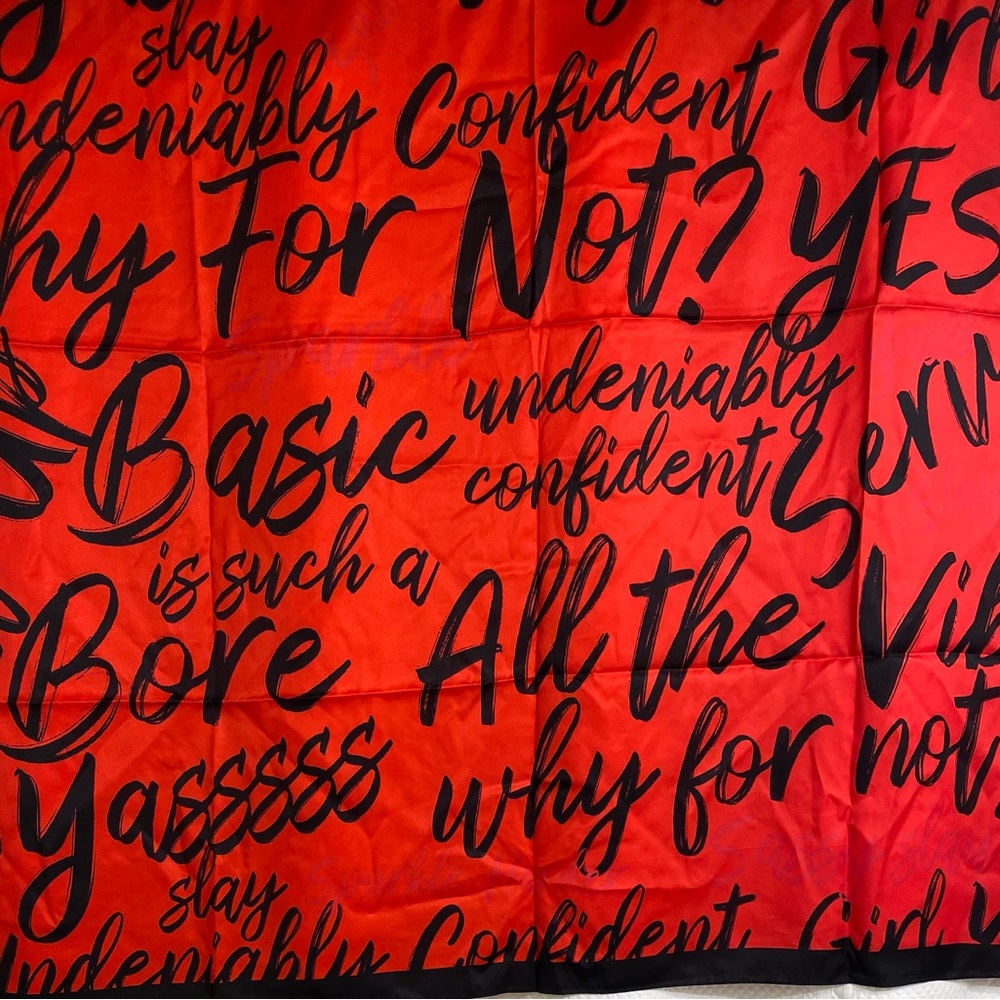 slay
undeniably Confident Girl
Why For Not? YES
Basic undeniably
confident
is such a
Bore All the
Yasssss why for not
slay
Undeniably Confident Girl
Sparkle